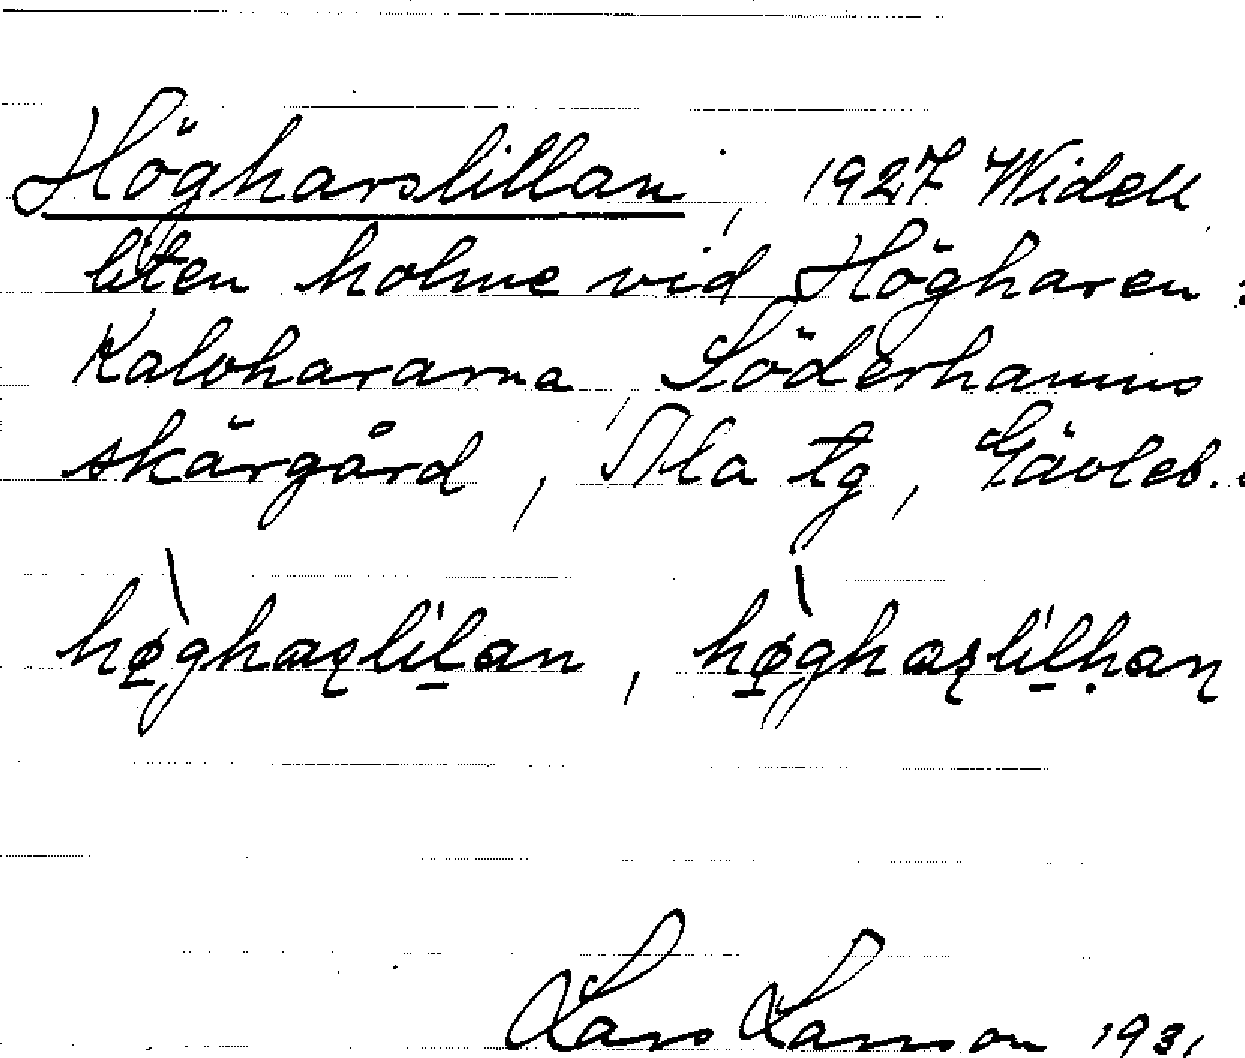 Högharslillan, 1927 Widell
liten holme vid Högharen i
Kalvhararna, Söderhamns
skärgård, Ala tg, Gävleb. l
hø̱ghaʂliḻan, hø̱ghaʂliḻḥan
Lars Larsson 1931